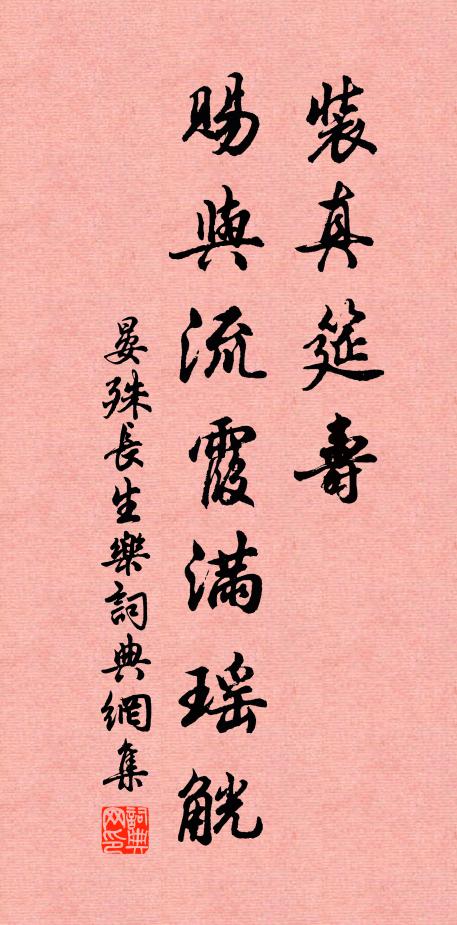 裝真筵壽
賜與流霞滿瑤觥
晏殊長生樂詞典網集
詞典网印